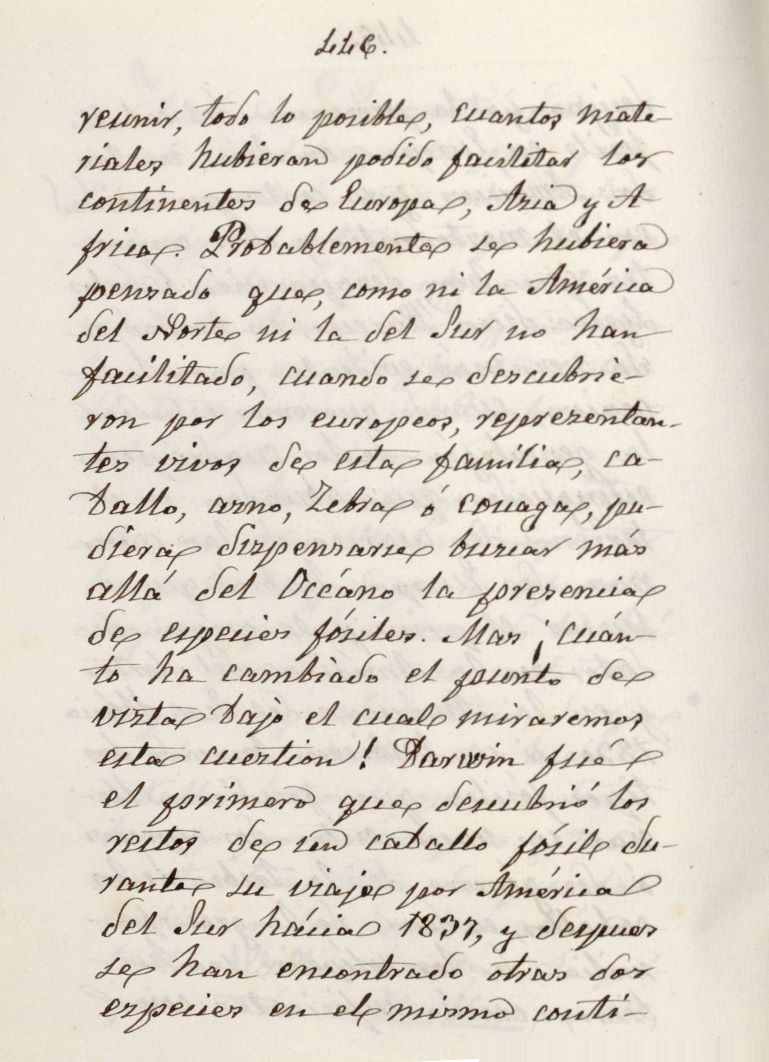 116.
reunir, todo lo posible, cuantos mate-
riales hubieran podido facilitar los
continentes de Europa, Asia y A-
frica. Probablemente se hubiera
pensado que, como ni la América
del Norte ni la del Sur no han
facilitado, cuando se descubrie-
ron por los europeos, representan-
tes vivos de esta familia, ca-
ballo, asno, Zebra ó couaga, pu-
diera dispensarse buscar más
allá del Océano la presencia
de especies fósiles. Mas ¡cuán-
to ha cambiado el punto de
vista bajo el cual miraremos
esta cuestion! Darwin fué
el primero que descubrió los
restos de un caballo fósil du-
rante su viaje por América
del Sur hácia 1837, y despues
se han encontrado otras dos
especies en el mismo conti-